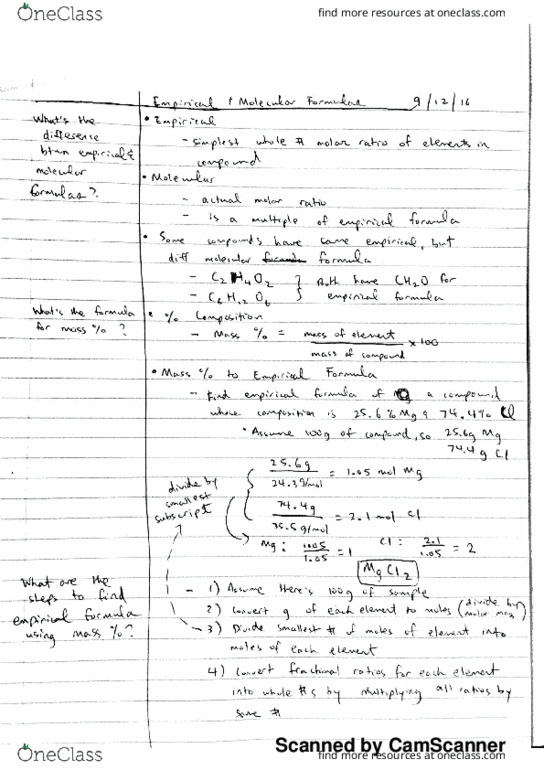 OneClass
find more resources at oneclass.com
Empirical & Molecular Formulae 9/12/16
What's the difference btwn empirical & molecular formulas?
• Empirical
- simplest whole # molar ratio of elements in compound
• Molecular
- actual molar ratio
- is a multiple of empirical formula
• Some compounds have same empirical, but
diff molecular formula
- C2H4O2 } Both have CH2O for
- C6H12O6 } empirical formula
What's the formula for mass %?
• % Composition
- Mass % = mass of element / mass of compound × 100
• Mass % to Empirical Formula
- Find empirical formula of a compound
whose composition is 25.6% Mg & 74.4% Cl
• Assume 100g of compound, so 25.6g Mg
74.4g Cl
25.6g / 24.3g/mol = 1.05 mol Mg
divide by smallest subscript
74.4g / 35.5g/mol = 2.1 mol Cl
Mg: 1.05/1.05 = 1 Cl: 2.1/1.05 = 2
MgCl2
What are the steps to find empirical formula using mass %?
- 1) Assume there's 100g of sample
2) Convert g of each element to moles (divide by molar mass)
- 3) Divide smallest # of moles of element into
moles of each element
4) Convert fractional ratios for each element
into whole #s by multiplying all ratios by
same #
Scanned by CamScanner
OneClass
find more resources at oneclass.com